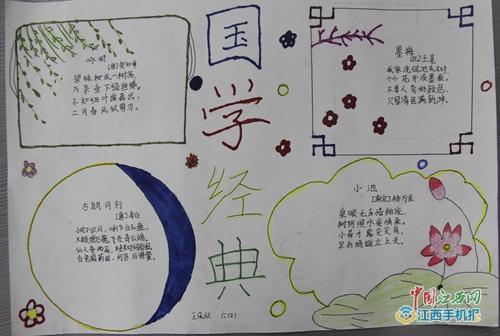 国学经典
咏柳
[唐]贺知章
碧绿妆成一树高,
万条垂下绿丝绦。
不知细叶谁裁出,
二月春风似剪刀。
墨梅
[元]王冕
我家洗砚池头树,
个个花开淡墨痕。
不要人夸好颜色,
只留清气满乾坤。
古朗月行
[唐]李白
小时不识月,呼作白玉盘。
又疑瑶台镜,飞在青云端。
仙人垂两足,桂树何团团。
白兔捣药成,问言与谁餐。
小池
[南宋]杨万里
泉眼无声惜细流,
树阴照水爱晴柔。
小荷才露尖尖角,
早有蜻蜓立上头。
六(2)
中国江西网
江西手机报